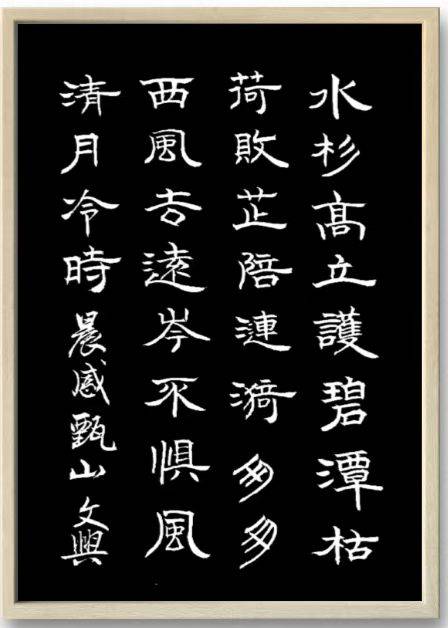 水杉髙立護碧潭枯
荷敗芷陪漣漪多多
西風去遠岑不惧風
清月冷時晨感甄山文興